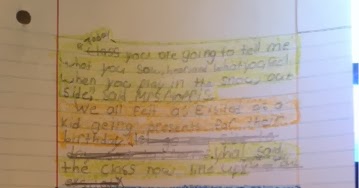 "Today!
Class you are going to tell me
what you saw, hear and what you feel
when you play in the snow out
side, said Mrs
We all feel as as a
kid geting presents for their
birthday
what said
the class now line up